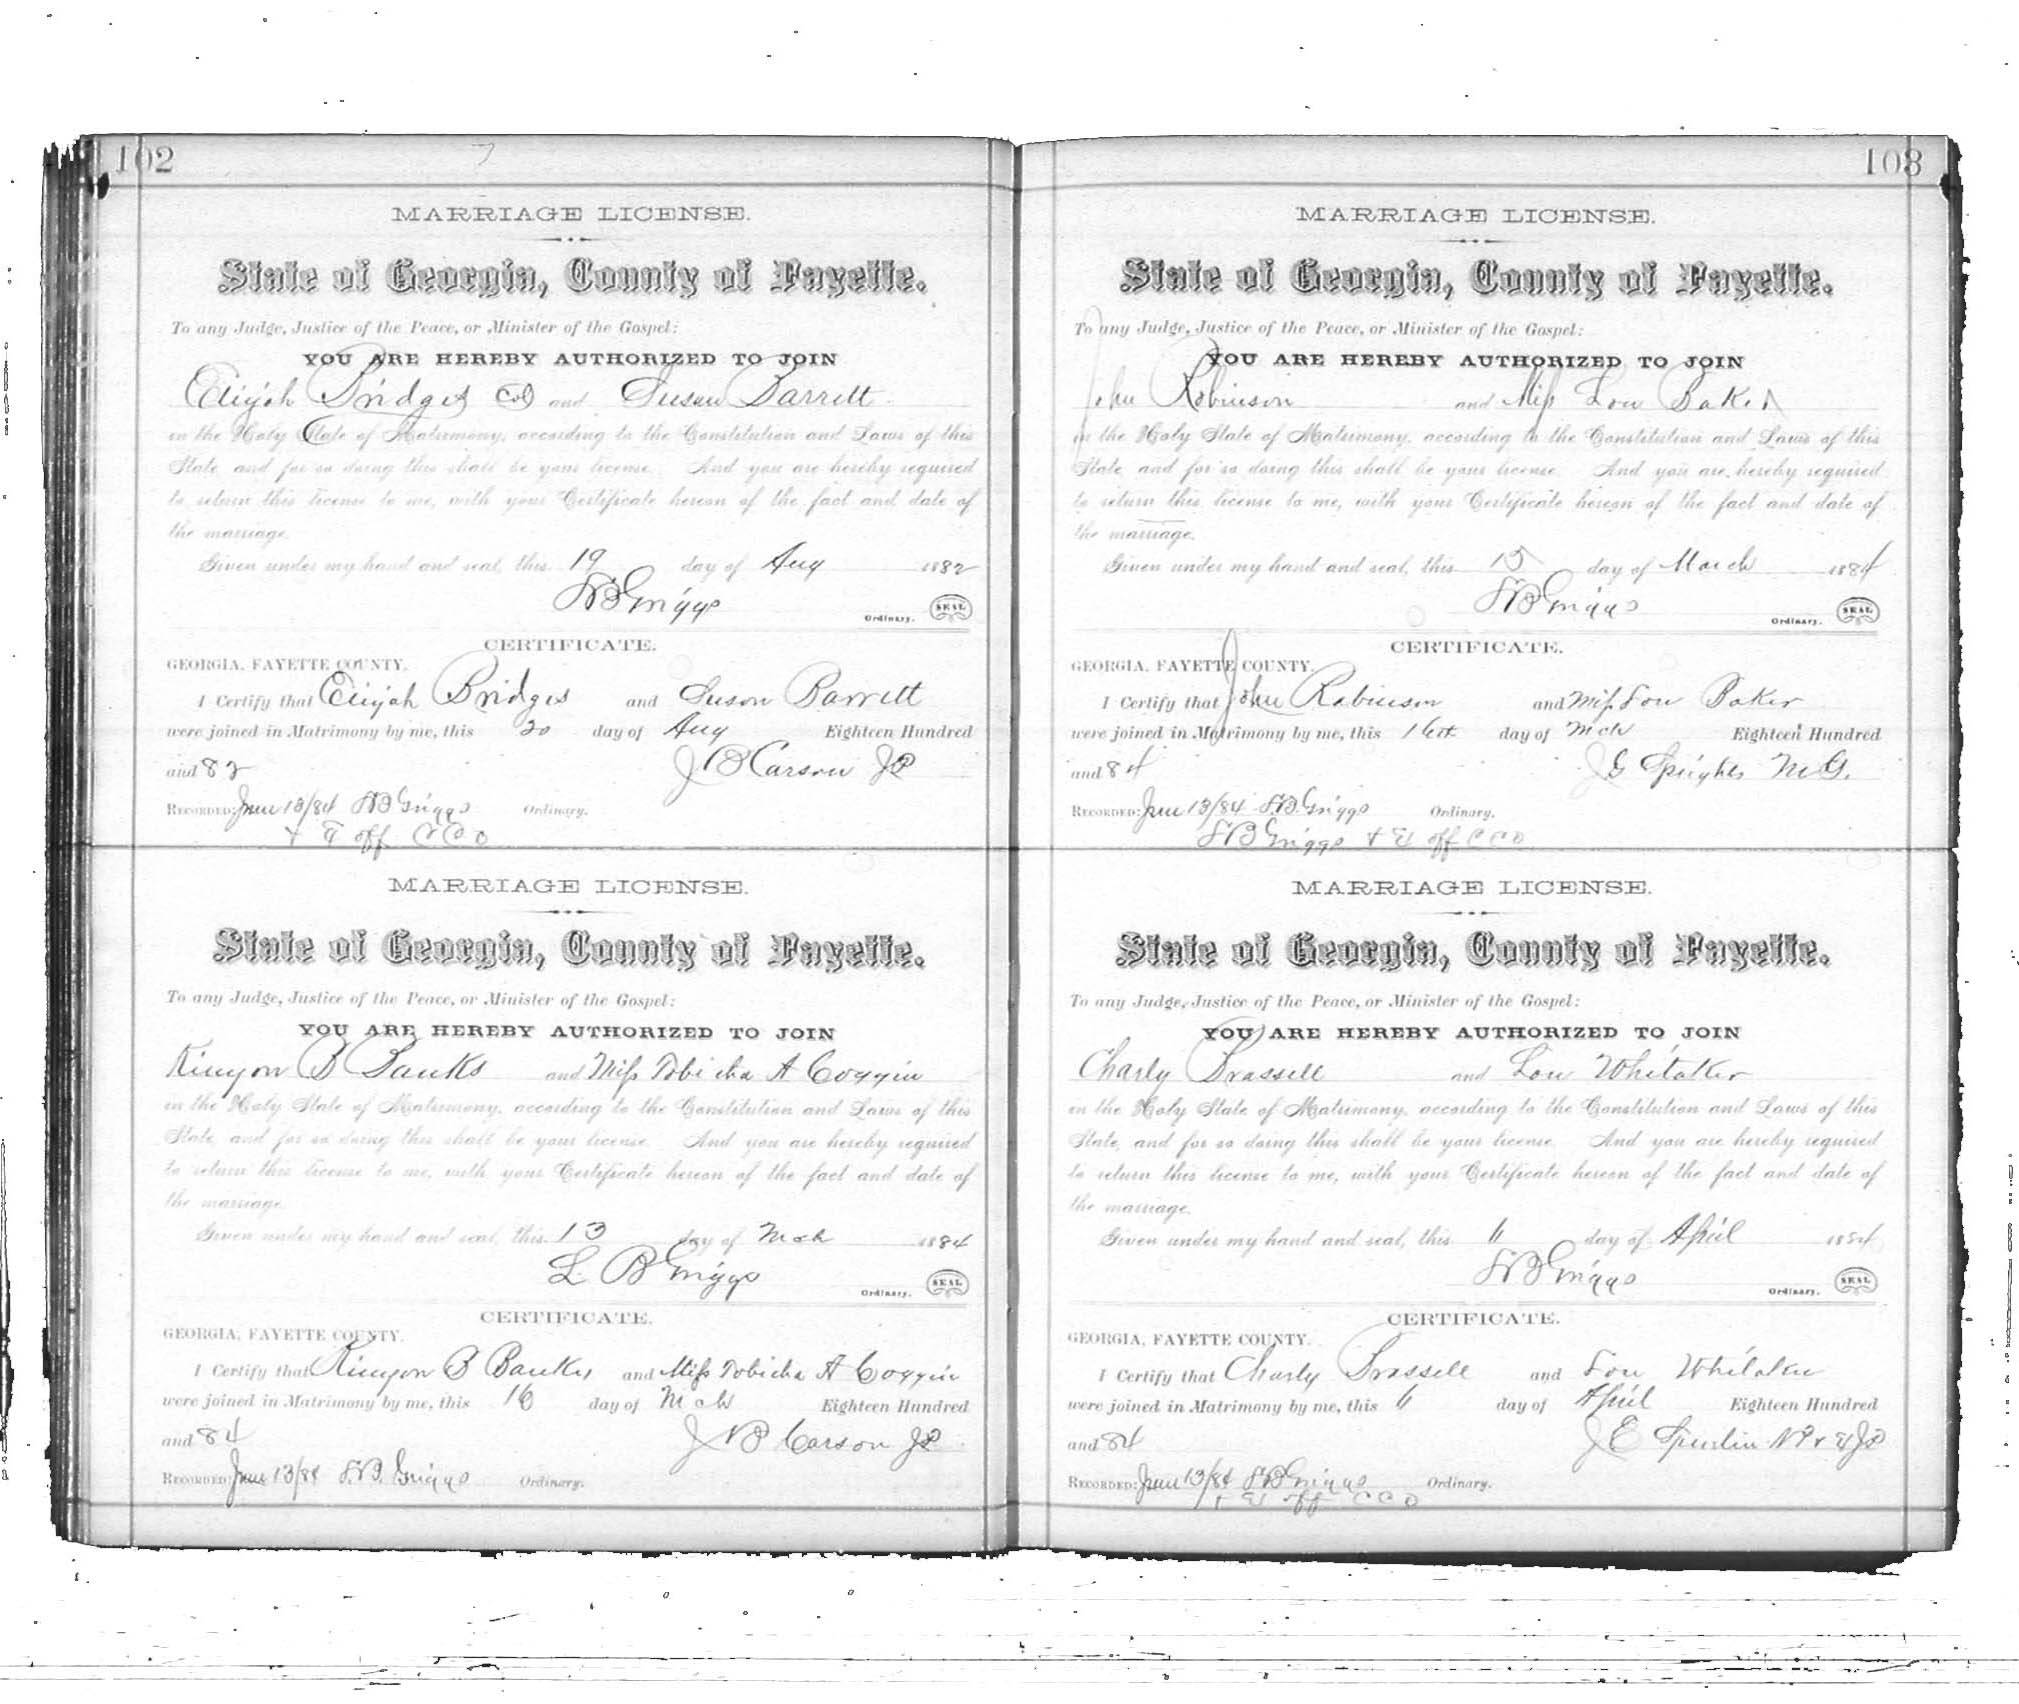 102
MARRIAGE LICENSE.
State of Georgia, County of Fayette.
To any Judge, Justice of the Peace, or Minister of the Gospel:
YOU ARE HEREBY AUTHORIZED TO JOIN
Elijah Bridges Col and Susan Barrett
in the Holy State of Matrimony, according to the Constitution and Laws of this
State, and for so doing this shall be your license. And you are hereby required
to return this license to me, with your Certificate hereon of the fact and date of
the marriage.
Given under my hand and seal, this 19 day of Aug 1882
L B Griggs
Ordinary. SEAL
CERTIFICATE.
GEORGIA, FAYETTE COUNTY.
I Certify that Elijah Bridges and Suson Barrett
were joined in Matrimony by me, this 20 day of Aug Eighteen Hundred
and 82 J B Carson JP
RECORDED: June 13/84 L B Griggs Ordinary.
off C C O
MARRIAGE LICENSE.
State of Georgia, County of Fayette.
To any Judge, Justice of the Peace, or Minister of the Gospel:
YOU ARE HEREBY AUTHORIZED TO JOIN
Kinyon B Banks and Miss Tobitha A Coggin
in the Holy State of Matrimony, according to the Constitution and Laws of this
State, and for so doing this shall be your license. And you are hereby required
to return this license to me, with your Certificate hereon of the fact and date of
the marriage.
Given under my hand and seal, this 13 day of Mch 1884
L. B Griggs
Ordinary. SEAL
CERTIFICATE.
GEORGIA, FAYETTE COUNTY.
I Certify that Kinyon B Banks and Miss Tobitha A Coggin
were joined in Matrimony by me, this 16 day of Mch Eighteen Hundred
and 84 J B Carson JP
RECORDED: June 13/84 L.B. Griggs Ordinary.
103
MARRIAGE LICENSE.
State of Georgia, County of Fayette.
To any Judge, Justice of the Peace, or Minister of the Gospel:
YOU ARE HEREBY AUTHORIZED TO JOIN
John Robinson and Miss Lou Baker
in the Holy State of Matrimony, according to the Constitution and Laws of this
State, and for so doing this shall be your license. And you are hereby required
to return this license to me, with your Certificate hereon of the fact and date of
the marriage.
Given under my hand and seal, this 15 day of March 1884
L B Griggs
Ordinary. SEAL
CERTIFICATE.
GEORGIA, FAYETTE COUNTY.
I Certify that John Robinson and Miss Lou Baker
were joined in Matrimony by me, this 16th day of Mch Eighteen Hundred
and 84 J G M.G.
RECORDED: June 13/84 L.B. Griggs Ordinary.
L B Griggs off C C O
MARRIAGE LICENSE.
State of Georgia, County of Fayette.
To any Judge, Justice of the Peace, or Minister of the Gospel:
YOU ARE HEREBY AUTHORIZED TO JOIN
Charly Brassell and Lou Whitaker
in the Holy State of Matrimony, according to the Constitution and Laws of this
State, and for so doing this shall be your license. And you are hereby required
to return this license to me, with your Certificate hereon of the fact and date of
the marriage.
Given under my hand and seal, this 6 day of April 1884
L B Griggs
Ordinary. SEAL
CERTIFICATE.
GEORGIA, FAYETTE COUNTY.
I Certify that Charly Brassell and Lou Whitaker
were joined in Matrimony by me, this 6 day of April Eighteen Hundred
and 84 J E Spurlin JP
RECORDED: June 13/84 L B Griggs Ordinary.
off C C O